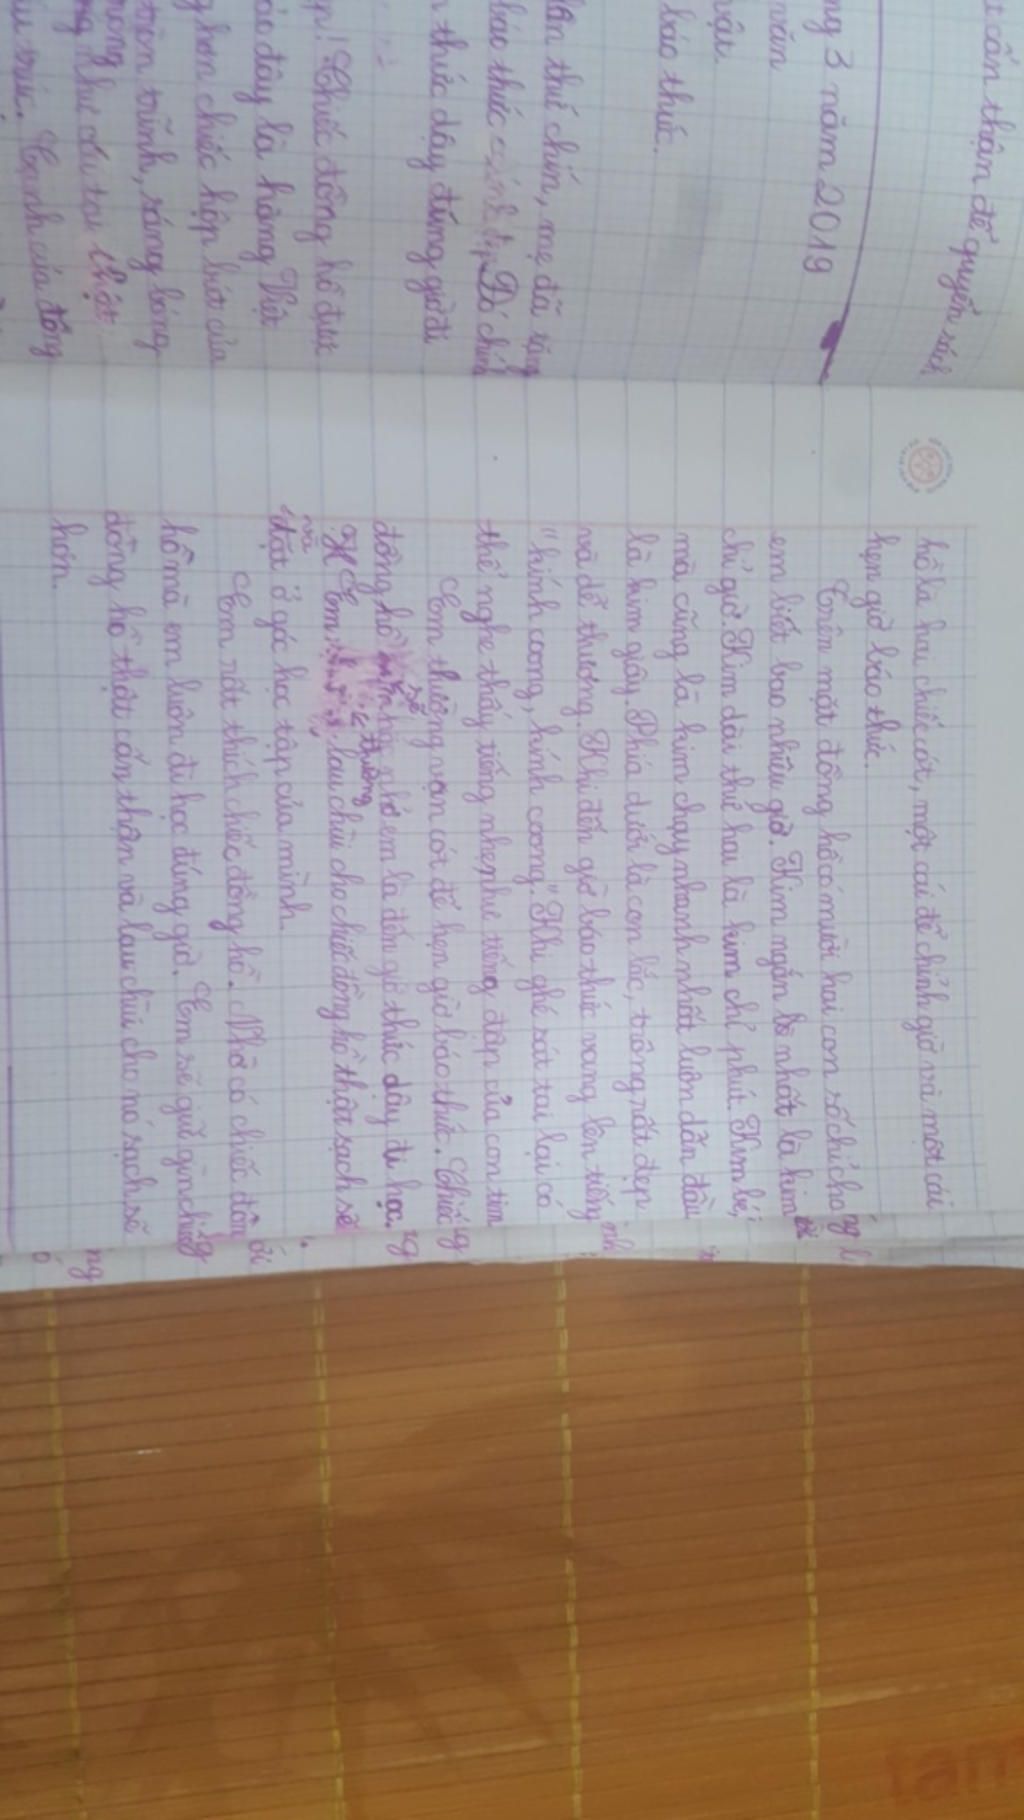 cẩn thận để quyển sách
ng 3 năm 2019
văn
vật
báo thức.
lần thứ chín, mẹ đã tặng
báo thức Đó chính
thức dậy đúng giờ đi
p! Chiếc đồng hồ được
đây là hàng Việt
hơn chiếc hộp bút của
tròn trĩnh, sáng bóng
như chật
Cạnh của đồng
hồ là hai chiếc cót, một cái để chỉnh giờ và một cái
hẹn giờ báo thức.
Trên mặt đồng hồ có mười hai con số chỉ cho
em biết bao nhiêu giờ. Kim ngắn to nhất là kim
chỉ giờ. Kim dài thứ hai là kim chỉ phút. Kim bé,
mà cũng là kim chạy nhanh nhất luôn dẫn đầu
là kim giây. Phía dưới là con lắc, trông rất đẹp
và dễ thương. Khi đến giờ báo thức vang lên tiếng
"kính coong, kính coong". Khi ghé sát tai lại có
thể nghe thấy tiếng nhẹ như tiếng đập của con tim
Em thường vặn cót để hẹn giờ báo thức. Chiếc
đồng hồ sẽ em là đến giờ thức dậy đi học.
Em thường lau chùi cho chiếc đồng hồ thật sạch sẽ
và đặt ở góc học tập của mình.
Em rất thích chiếc đồng hồ. Nhờ có chiếc đồng
hồ mà em luôn đi học đúng giờ. Em sẽ giữ gìn chiếc
đồng hồ thật cẩn thận và lau chùi cho nó sạch sẽ
hơn.